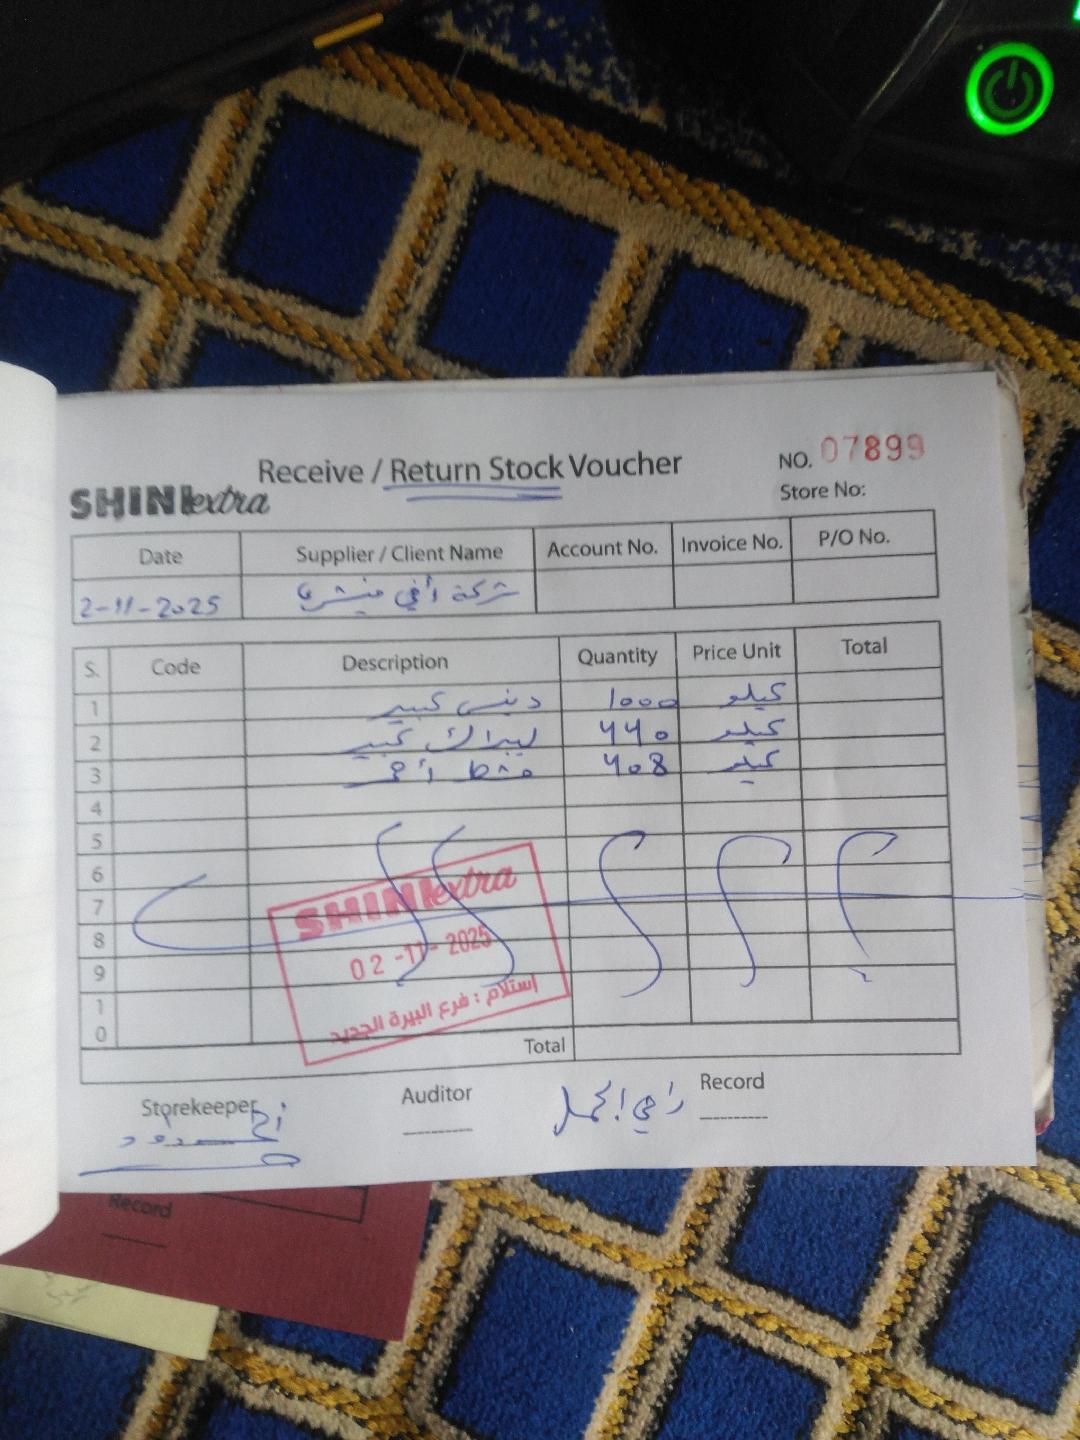 Receive / Return Stock Voucher
NO. 07899
SHINI extra
Store No:
Date Supplier / Client Name Account No. Invoice No. P/O No.
2-11-2025 شركة رافي
S. Code Description Quantity Price Unit Total
1 دنس كبير 1000 كيلو
2 ليدراك كبير 440 كيلو
3 كيلو
4
5
6
7
8
9
10
SHINI extra
02-11-2025
إستلام : فرع البيرة الجديد
Total
Storekeeper Auditor Record
Record